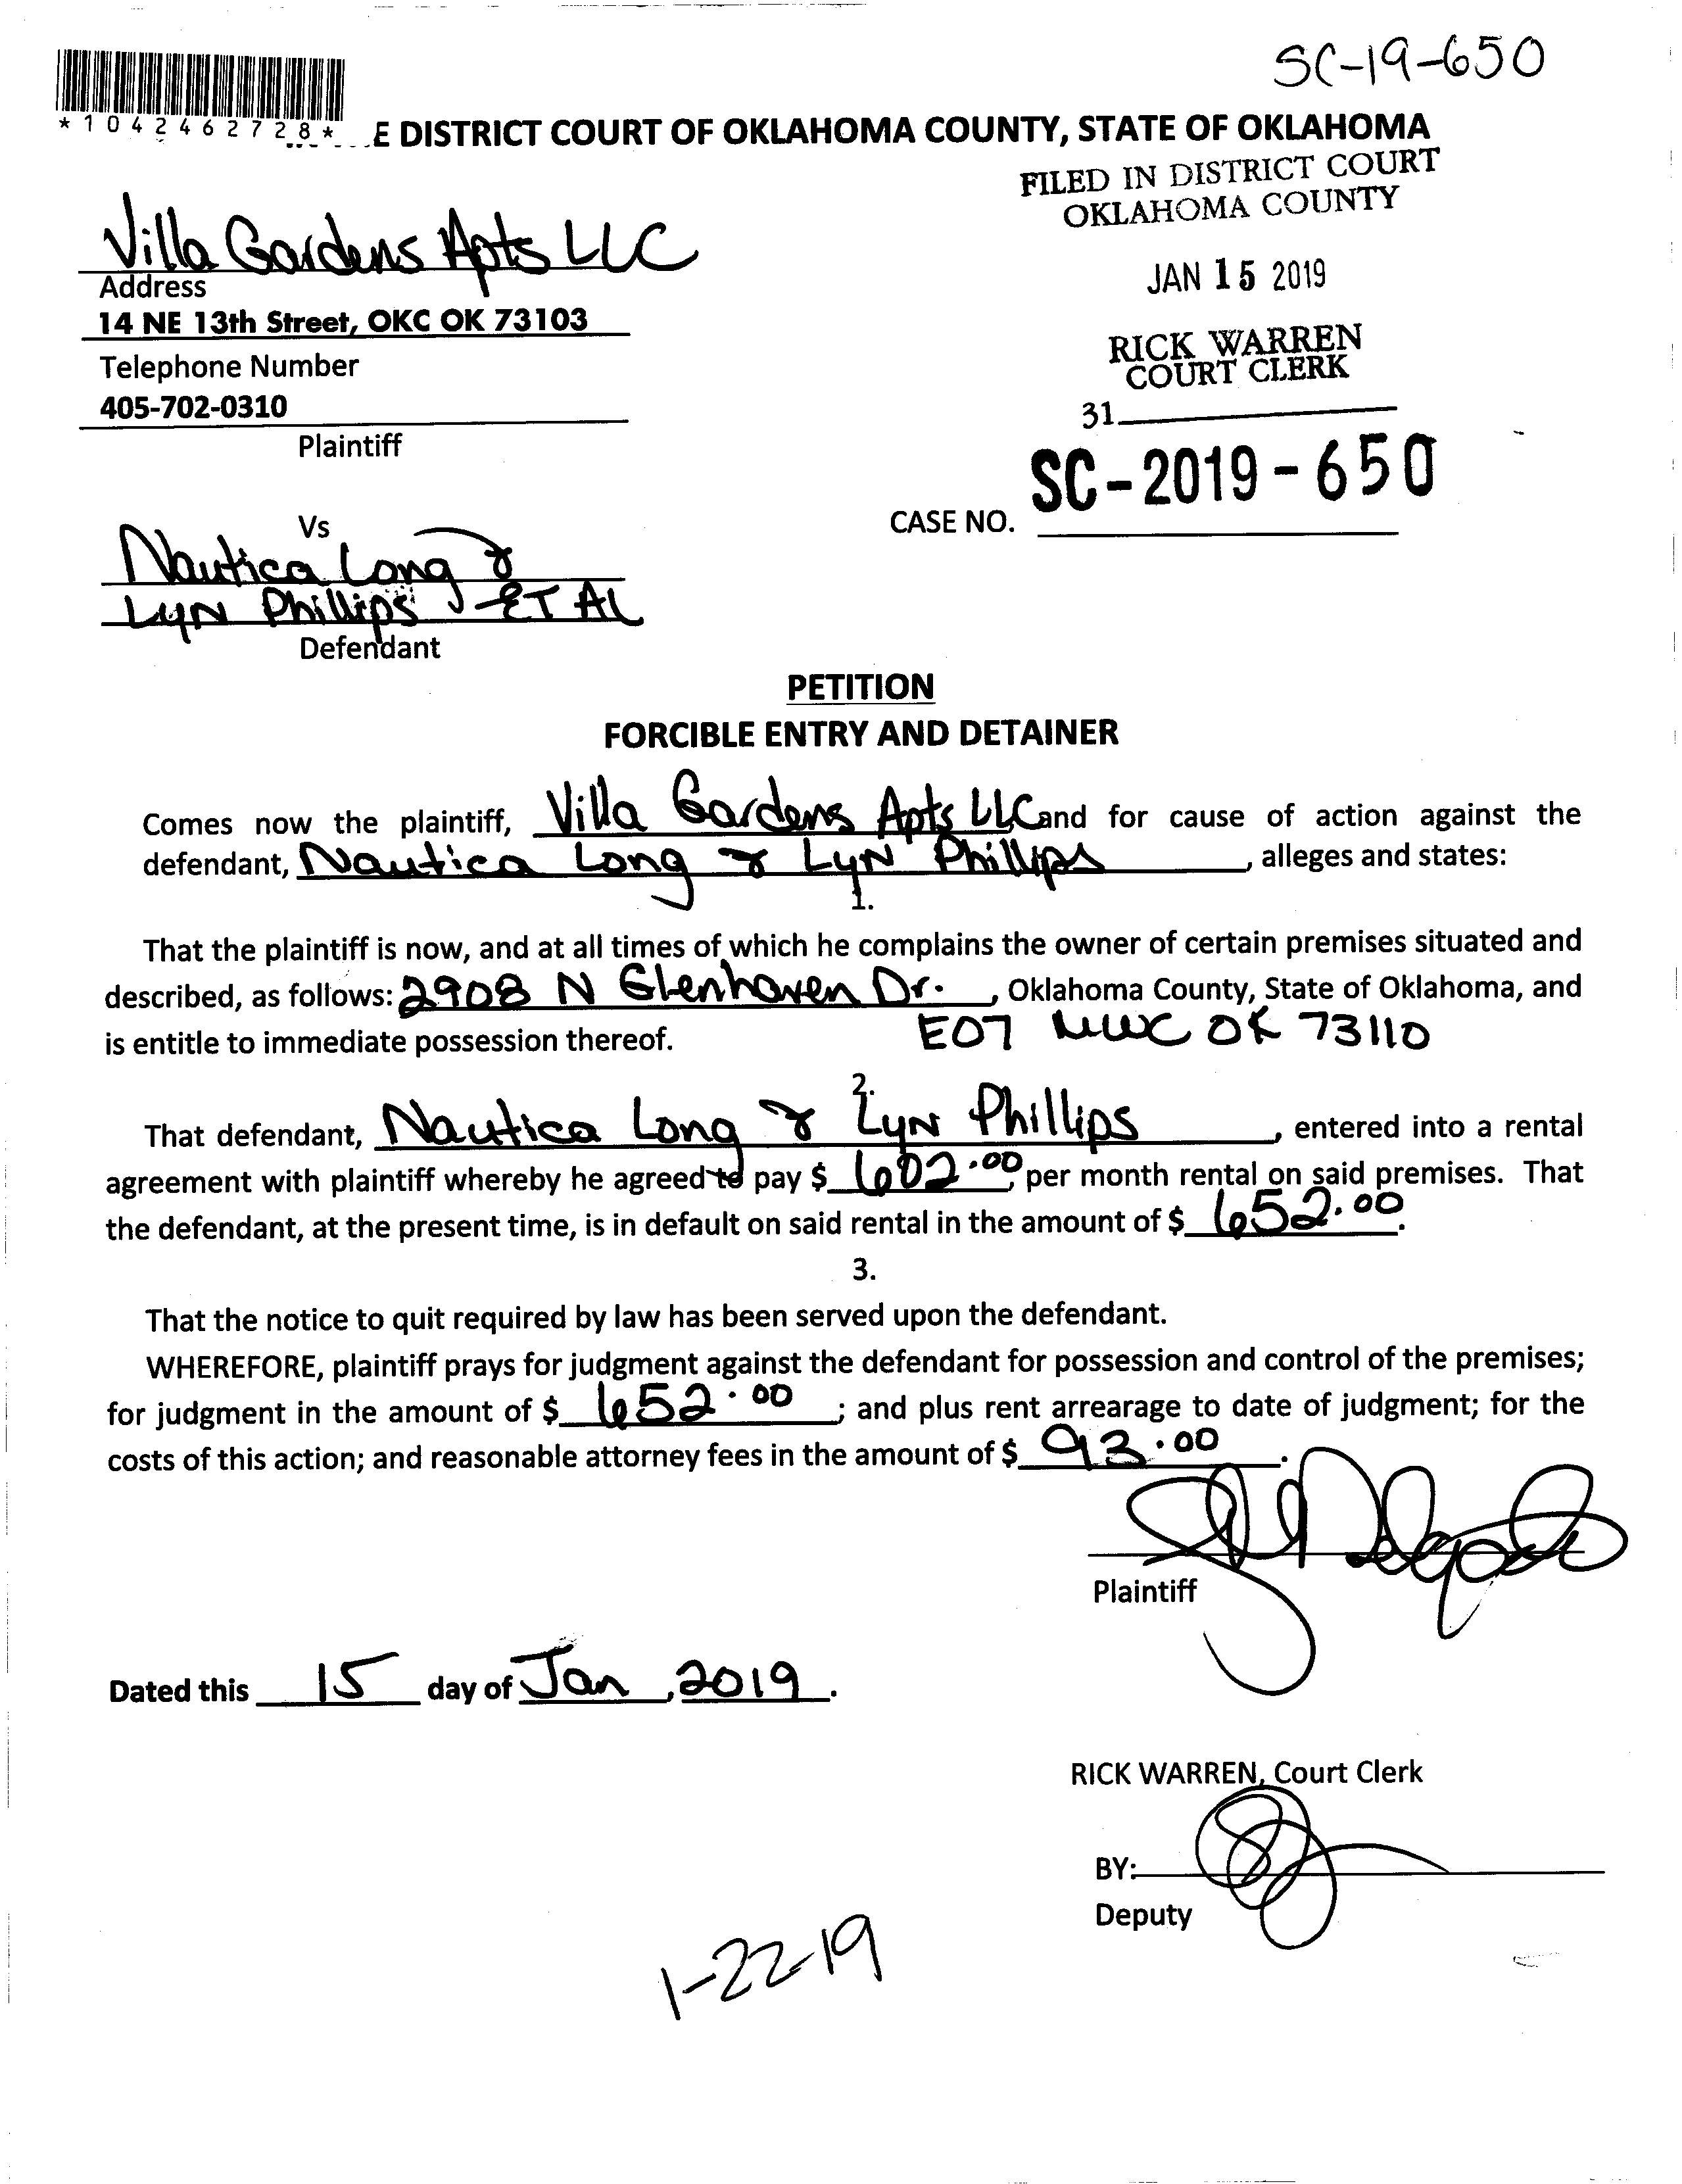 SC-19-650
*1042462728*
E DISTRICT COURT OF OKLAHOMA COUNTY, STATE OF OKLAHOMA
FILED IN DISTRICT COURT
OKLAHOMA COUNTY
JAN 15 2019
RICK WARREN
COURT CLERK
31
Villa Gardens Apts LLC
Address
14 NE 13th Street, OKC OK 73103
Telephone Number
405-702-0310
Plaintiff
SC-2019-650
CASE NO.
Vs
Nautica Long &
Lyn Phillips ET AL
Defendant
PETITION
FORCIBLE ENTRY AND DETAINER
Comes now the plaintiff, Villa Gardens Apts LLC and for cause of action against the
defendant, Nautica Long & Lyn Phillips, alleges and states:
1.
That the plaintiff is now, and at all times of which he complains the owner of certain premises situated and
described, as follows: 2908 N Glenhaven Dr., Oklahoma County, State of Oklahoma, and
is entitle to immediate possession thereof. E07 MWC OK 73110
2.
That defendant, Nautica Long & Lyn Phillips, entered into a rental
agreement with plaintiff whereby he agreed to pay $ 602.00, per month rental on said premises. That
the defendant, at the present time, is in default on said rental in the amount of $ 652.00.
3.
That the notice to quit required by law has been served upon the defendant.
WHEREFORE, plaintiff prays for judgment against the defendant for possession and control of the premises;
for judgment in the amount of $ 652.00; and plus rent arrearage to date of judgment; for the
costs of this action; and reasonable attorney fees in the amount of $ 93.00.
Plaintiff
Dated this 15 day of Jan, 2019.
RICK WARREN, Court Clerk
BY:
Deputy
1-22-19